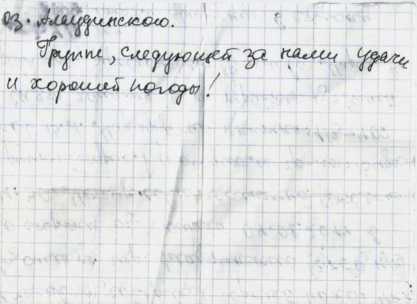 оз. Алаудинского.
Группе, следующей за нами удачи
и хорошей погоды!